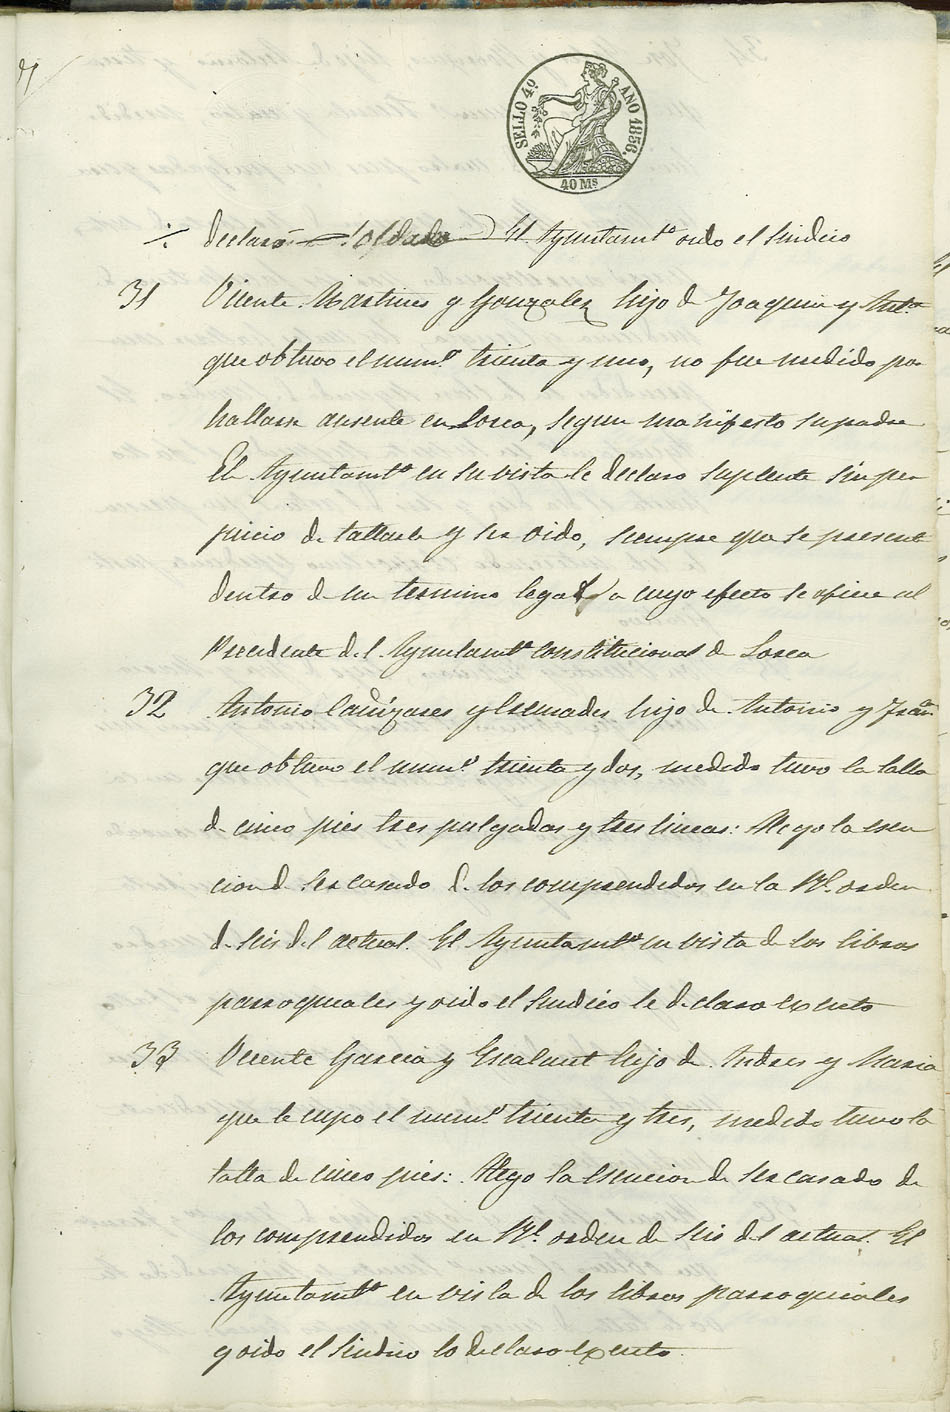 SELLO 4º AÑO 1856.
40 Ms
declaró Soldado El Ayuntamtº oido el Sindico
31 Vicente Martines y Gonzalez hijo de Joaquin y Antª
que obtuvo el numº treinta y uno, no fue medido por
hallarse ausente en Lorca, segun manifesto su padre
El Ayuntamtº en su vista le declaro suplente sin per
juicio de tallarle y ser oido, siempre que se presente
dentro de un termino legal, a cuyo efecto se oficie al
Precidente del Ayuntamtº constitucional de Lorca
32 Antonio Cañizares y hijo de Antonio y Francª
que obtuvo el numº treinta y dos, medido tuvo la talla
de cinco pies tres pulgadas y tres lineas: Alego la esen
cion de ser casado de los comprendidos en la Rl. orden
de seis del actual. El Ayuntamtº en vista de los libros
parroquiales y oido el Sindico le declaro exento
33 Vicente Garcia y Escalant hijo de Andres y Maria
que le cupo el numº treinta y tres, medido tuvo la
talla de cinco pies: Alego la esencion de ser casado de
los comprendidos en Rl. orden de seis del actual. El
Ayuntamtº en vista de los libros parroquiales
y oido el Sindico lo declaro exento.